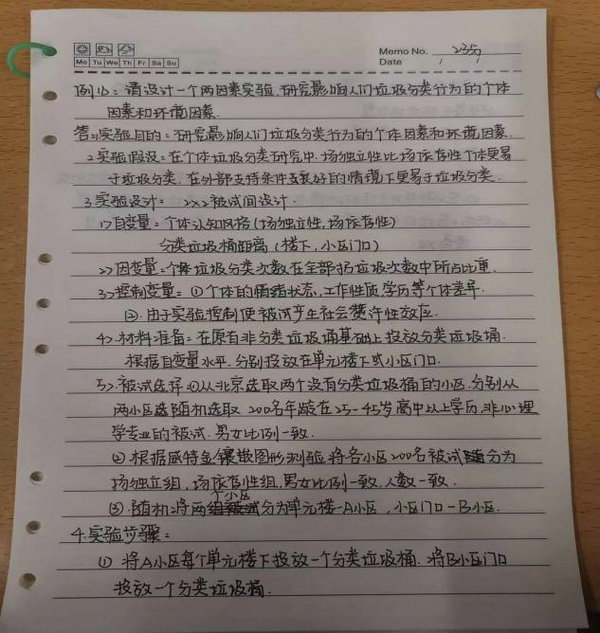 Memo No. 235
Mo Tu We Th Fr Sa Su
Date / /
例10：请设计一个两因素实验，研究影响人们垃圾分类行为的个体
因素和环境因素.
答：1.实验目的：研究影响人们垃圾分类行为的个体因素和环境因素.
2.实验假设：在个体垃圾分类研究中，场独立性比场依存性个体更易
于垃圾分类，在外部支持条件良好的情境下更易于垃圾分类.
3.实验设计：2×2被试间设计.
1>自变量：个体认知风格(场独立性，场依存性)
分类垃圾桶距离（楼下，小区门口）
2>因变量：个体垃圾分类次数在全部扔垃圾次数中所占比重.
3>控制变量：①个体的情绪状态，工作性质学历等个体差异.
②.由于实验控制使被试产生社会赞许性效应.
4>.材料准备：在原有非分类垃圾桶基础上投放分类垃圾桶.
根据自变量水平，分别投放在单元楼下或小区门口.
5>.被试选择：①从北京选取两个没有分类垃圾桶的小区，分别从
两小区随机选取 200名年龄在25-45岁高中以上学历，非心理
学专业的被试，男女比例一致.
② 根据威特金镶嵌图形测验将各小区200名被试分为
场独立组，场依存性组，男女比例一致，人数一致.
③ 随机将两个小区分为单元楼-A小区，小区门口-B小区.
4.实验步骤：
① 将A小区每个单元楼下投放一个分类垃圾桶，将B小区门口
投放一个分类垃圾桶.